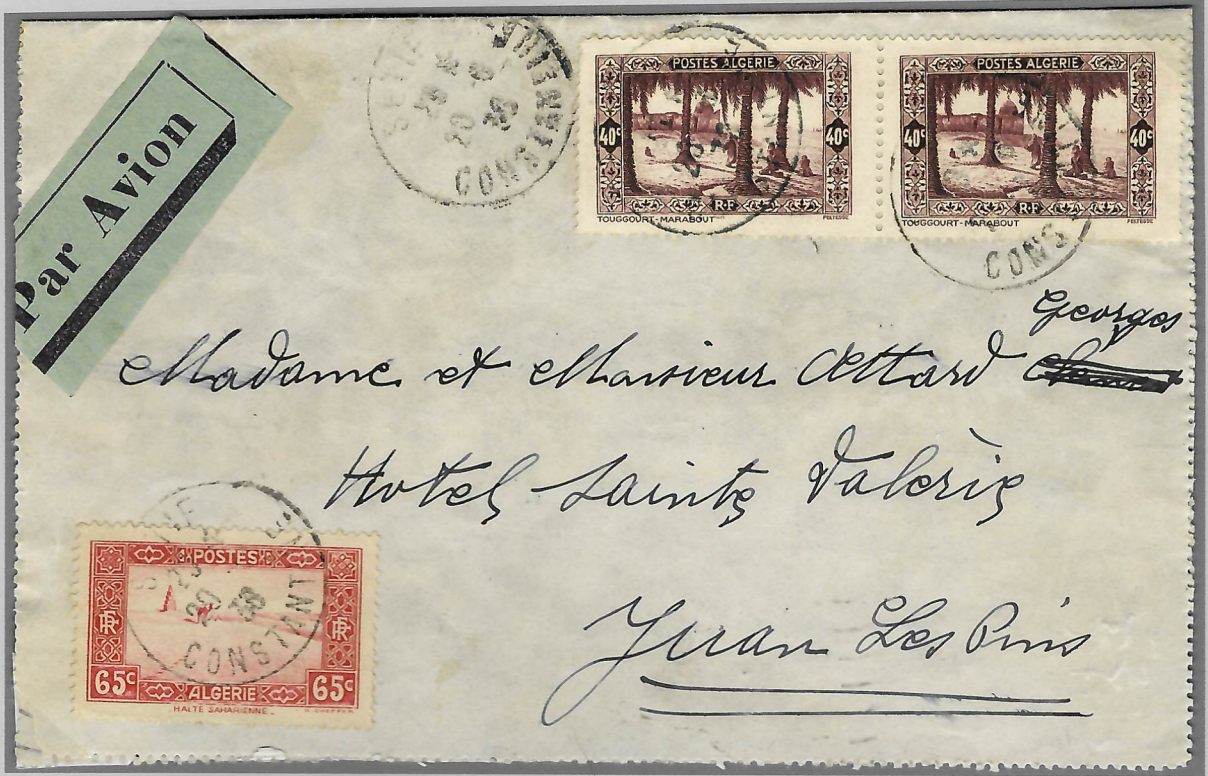 Par Avion
POSTES ALGERIE
40c 40c
RF
TOUGGOURT-MARABOUT
POSTES ALGERIE
40c 40c
RF
TOUGGOURT-MARABOUT
CONS
Georges
Madame et Monsieur Attard
Hotel Sainte Valérie
Juan Les Pins
POSTES
RF RF
65c ALGERIE 65c
HALTE SAHARIENNE
20 38
CONSTANT